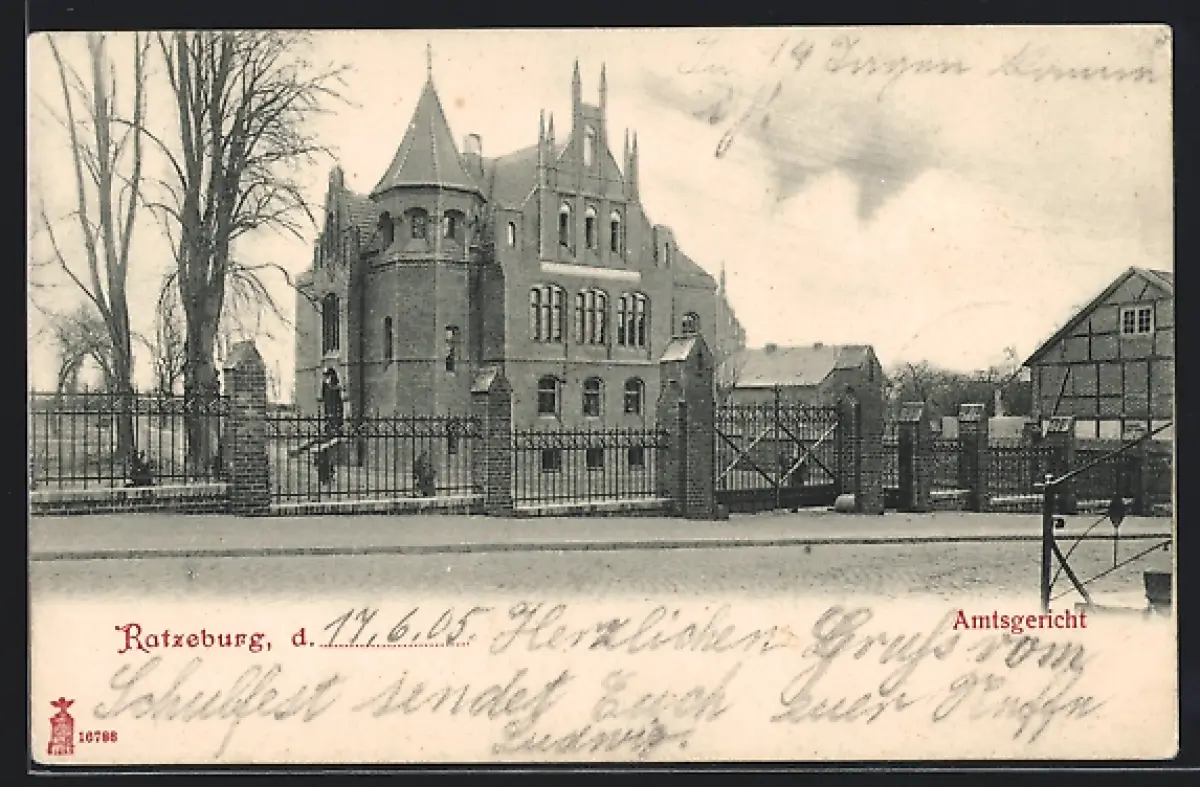 In 14 Tagen komm
Ratzeburg, d. 17.6.05. Herzlichen Gruß vom
Amtsgericht
Schulfest sendet Euch Euer Neffe
Ludwig.
16788